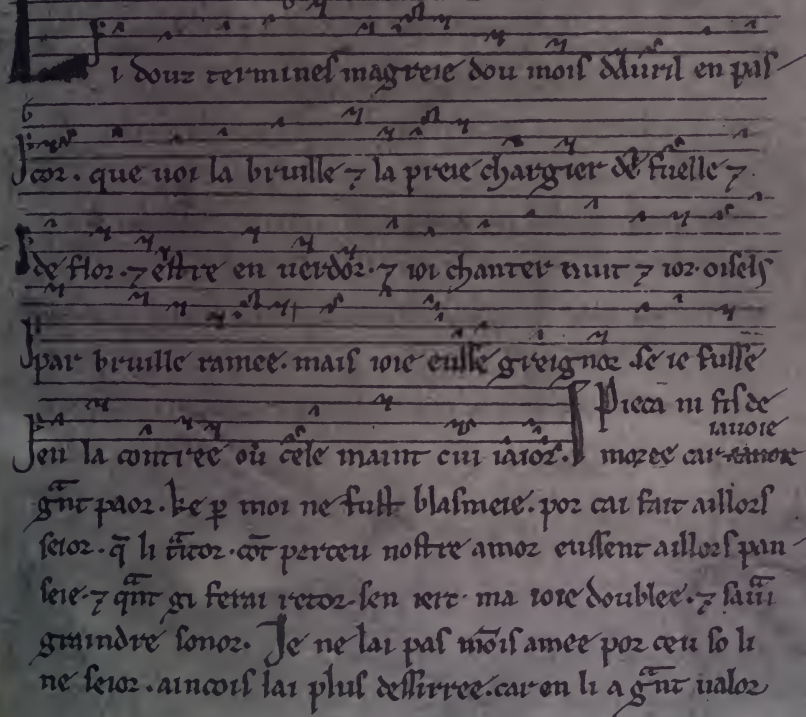 Li douz termines magreie dou mois dauril en pas
cor . que uoi la bruille ⁊ la preie chargier de fuelle ⁊
de flor . ⁊ estre en uerdor . ⁊ ioi chanter nuit ⁊ ior . oisels
par bruille ramee . mais ioie eusse greignor . se ie fusse
en la contree ou cele maint cui iaior .
Pieca ni fis de
iauoie
moree car
gᵃnt paor . ke ꝑ moi ne fust blasmeie . por cai fait aillors
seior . q̄ li
cōt perceu nostre amor eussent aillors pan
seie . ⁊ qᵃnt gi ferai retor . sen iert ma ioie doublee . ⁊
graindre sonor . Je ne lai pas mois amee por ceu so li
ne seior . aincois lai plus dessirree . car en li a gᵃnt ualor